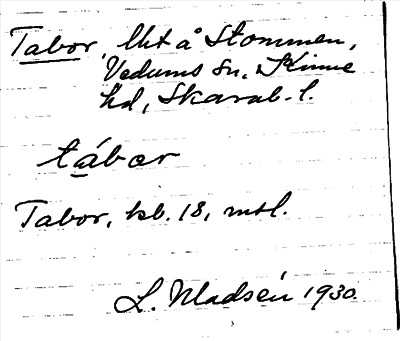 Tabor, lht å Stommen,
Vedums sn, Kinne
hd, Skarab. l.
tábor
Tabor, kb. 18, mtl.
L. Madsén 1930.